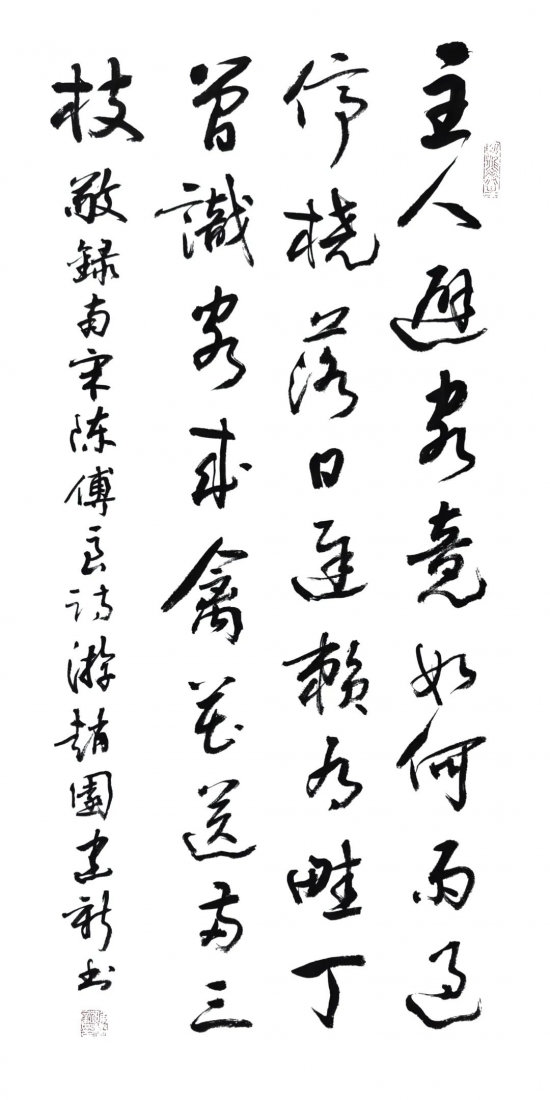 主人避客竟如何雨過
停橈落日遲賴有畦丁
曾識客來禽花送兩三
枝 敬録南宋陳傅良詩游趙園建新書